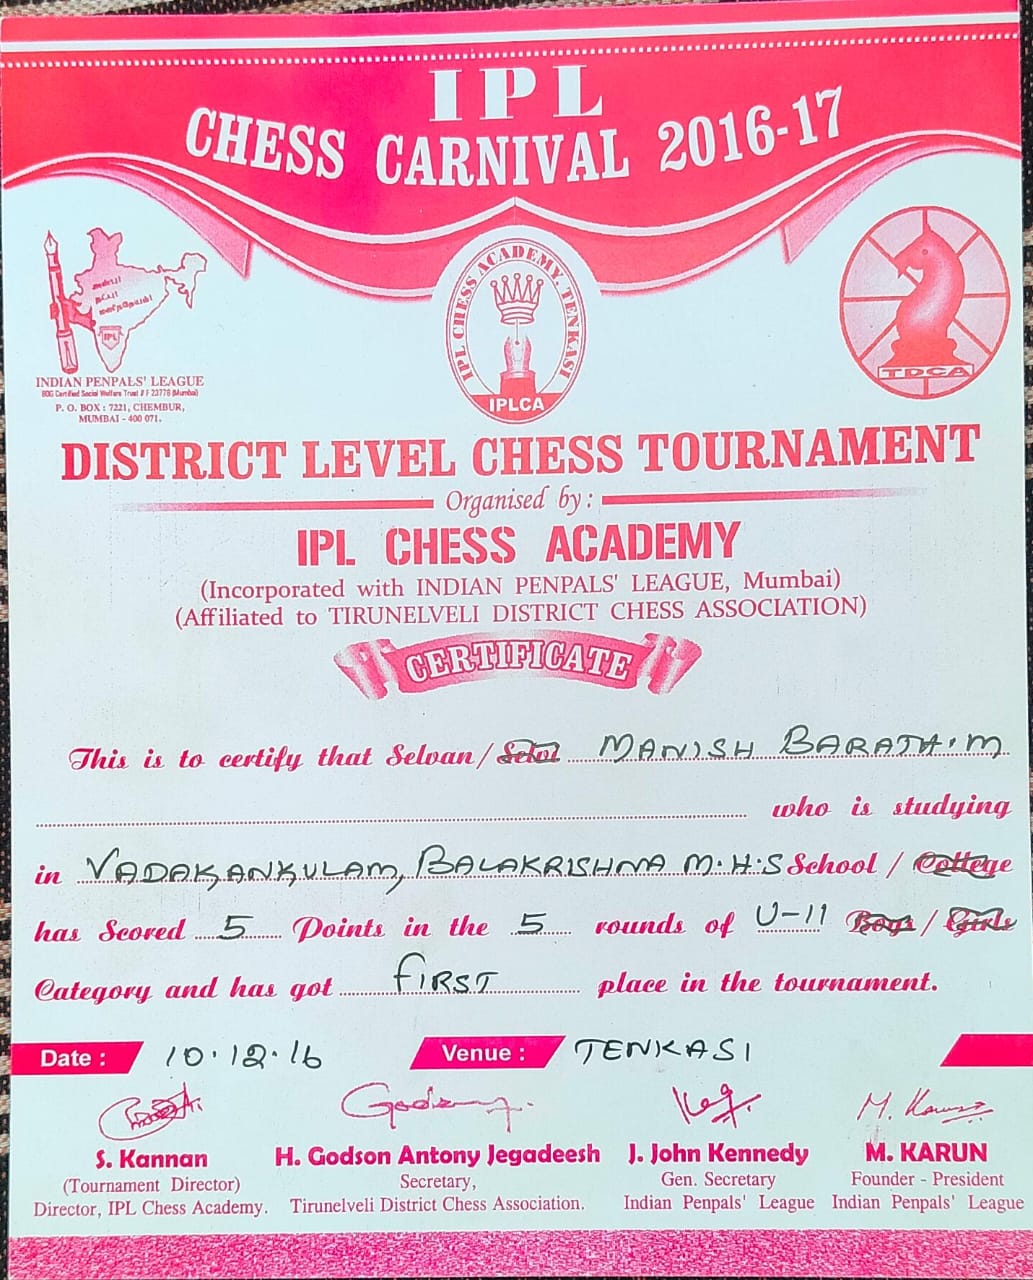 IPL
CHESS CARNIVAL 2016-17
INDIAN PENPALS' LEAGUE
P. O. BOX : 7221, CHEMBUR,
MUMBAI - 400 071.
IPL
IPL CHESS ACADEMY. TENKASI
IPLCA
TDCA
DISTRICT LEVEL CHESS TOURNAMENT
Organised by :
IPL CHESS ACADEMY
(Incorporated with INDIAN PENPALS' LEAGUE, Mumbai)
(Affiliated to TIRUNELVELI DISTRICT CHESS ASSOCIATION)
CERTIFICATE
This is to certify that Selvan / Selvi MANISH BARATH.M
who is studying
in VADAKANKULAM, BALAKRISHNA M.H.S School / College
has Scored 5 Points in the 5 rounds of U-11 Boys / Girls
Category and has got FIRST place in the tournament.
Date : 10.12.16 Venue : TENKASI
S. Kannan
(Tournament Director)
Director, IPL Chess Academy.
H. Godson Antony Jegadeesh
Secretary,
Tirunelveli District Chess Association.
J. John Kennedy
Gen. Secretary
Indian Penpals' League
M. Karun
M. KARUN
Founder - President
Indian Penpals' League